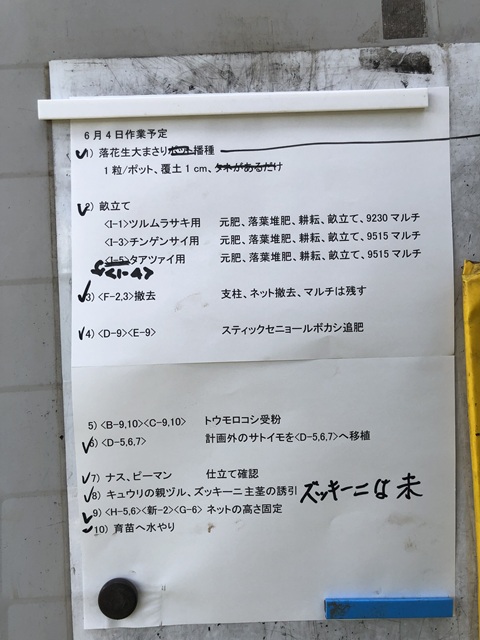 6月4日作業予定
1) 落花生大まさりポット播種
1粒/ポット、覆土1cm、タネがあるだけ
2) 畝立て
<I-1>ツルムラサキ用 元肥、落葉堆肥、耕耘、畝立て、9230マルチ
<I-3>チンゲンサイ用 元肥、落葉堆肥、耕耘、畝立て、9515マルチ
<I-5>タアツァイ用 元肥、落葉堆肥、耕耘、畝立て、9515マルチ
<I-4>
3) <F-2,3>撤去 支柱、ネット撤去、マルチは残す
4) <D-9><E-9> スティックセニョールボカシ追肥
5) <B-9,10><C-9,10> トウモロコシ受粉
6) <D-5,6,7> 計画外のサトイモを<D-5,6,7>へ移植
7) ナス、ピーマン 仕立て確認
8) キュウリの親ヅル、ズッキーニ主茎の誘引 ズッキーニは未
9) <H-5,6><新-2><G-6> ネットの高さ固定
10) 育苗へ水やり